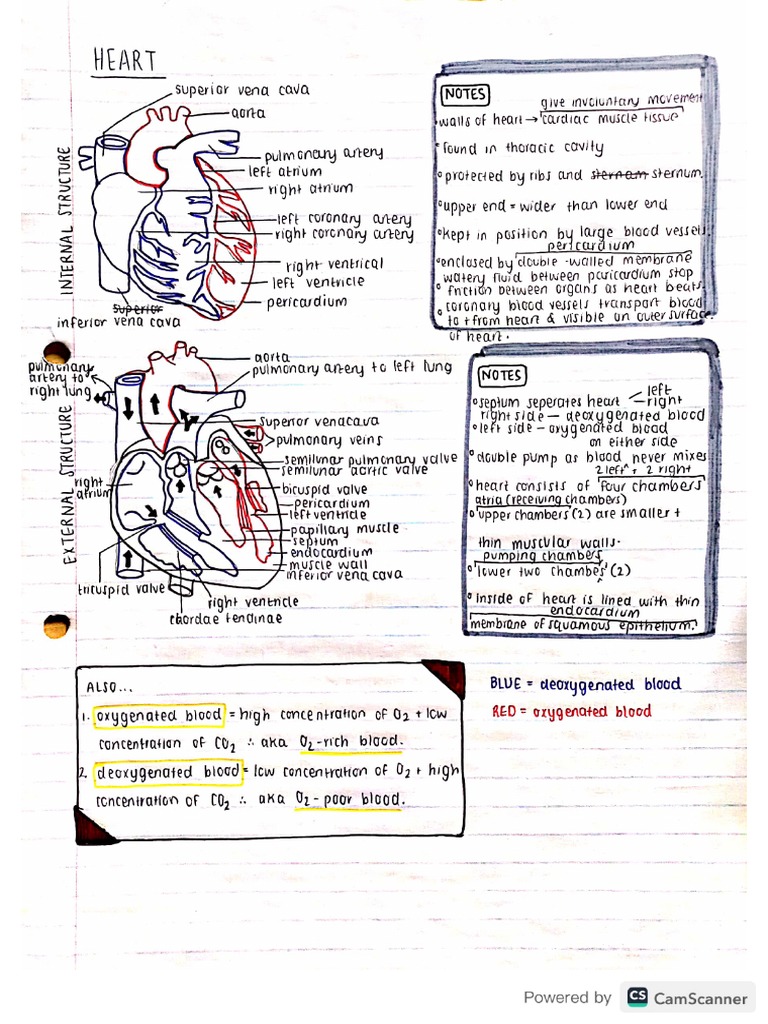 HEART
superior vena cava
aorta
pulmonary artery
left atrium
right atrium
left coronary artery
right coronary artery
right ventrical
left ventricle
pericardium
superior
inferior vena cava
INTERNAL STRUCTURE
NOTES
give involuntary movement
walls of heart → cardiac muscle tissue
found in thoracic cavity
protected by ribs and sternam sternum.
upper end = wider than lower end
kept in position by large blood vessels
pericardium
enclosed by double-walled membrane
watery fluid between pericardium stop
friction between organs as heart beats
coronary blood vessels transport blood
to + from heart & visible on outer surface
of heart.
pulmonary
artery to
right lung
aorta
pulmonary artery to left lung
superior venacava
pulmonary veins
semilunar pulmonary valve
semilunar aortic valve
bicuspid valve
pericardium
left ventricle
papillary muscle
septum
endocardium
muscle wall
inferior vena cava
right
atrium
tricuspid valve
right ventricle
chordae tendinae
EXTERNAL STRUCTURE
NOTES
septum seperates heart left
right
right side – deoxygenated blood
left side – oxygenated blood
on either side
double pump as blood never mixes
2 left + 2 right
heart consists of four chambers
atria (receiving chambers)
upper chambers (2) are smaller +
thin muscular walls.
pumping chambers
lower two chambes (2)
inside of heart is lined with thin
endocardium
membrane of squamous epithelium.
ALSO...
1. oxygenated blood = high concentration of O2 + low
concentration of CO2 ∴ aka O2-rich blood.
2. deoxygenated blood = low concentration of O2 + high
concentration of CO2 ∴ aka O2-poor blood.
BLUE = deoxygenated blood
RED = oxygenated blood
Powered by CS CamScanner